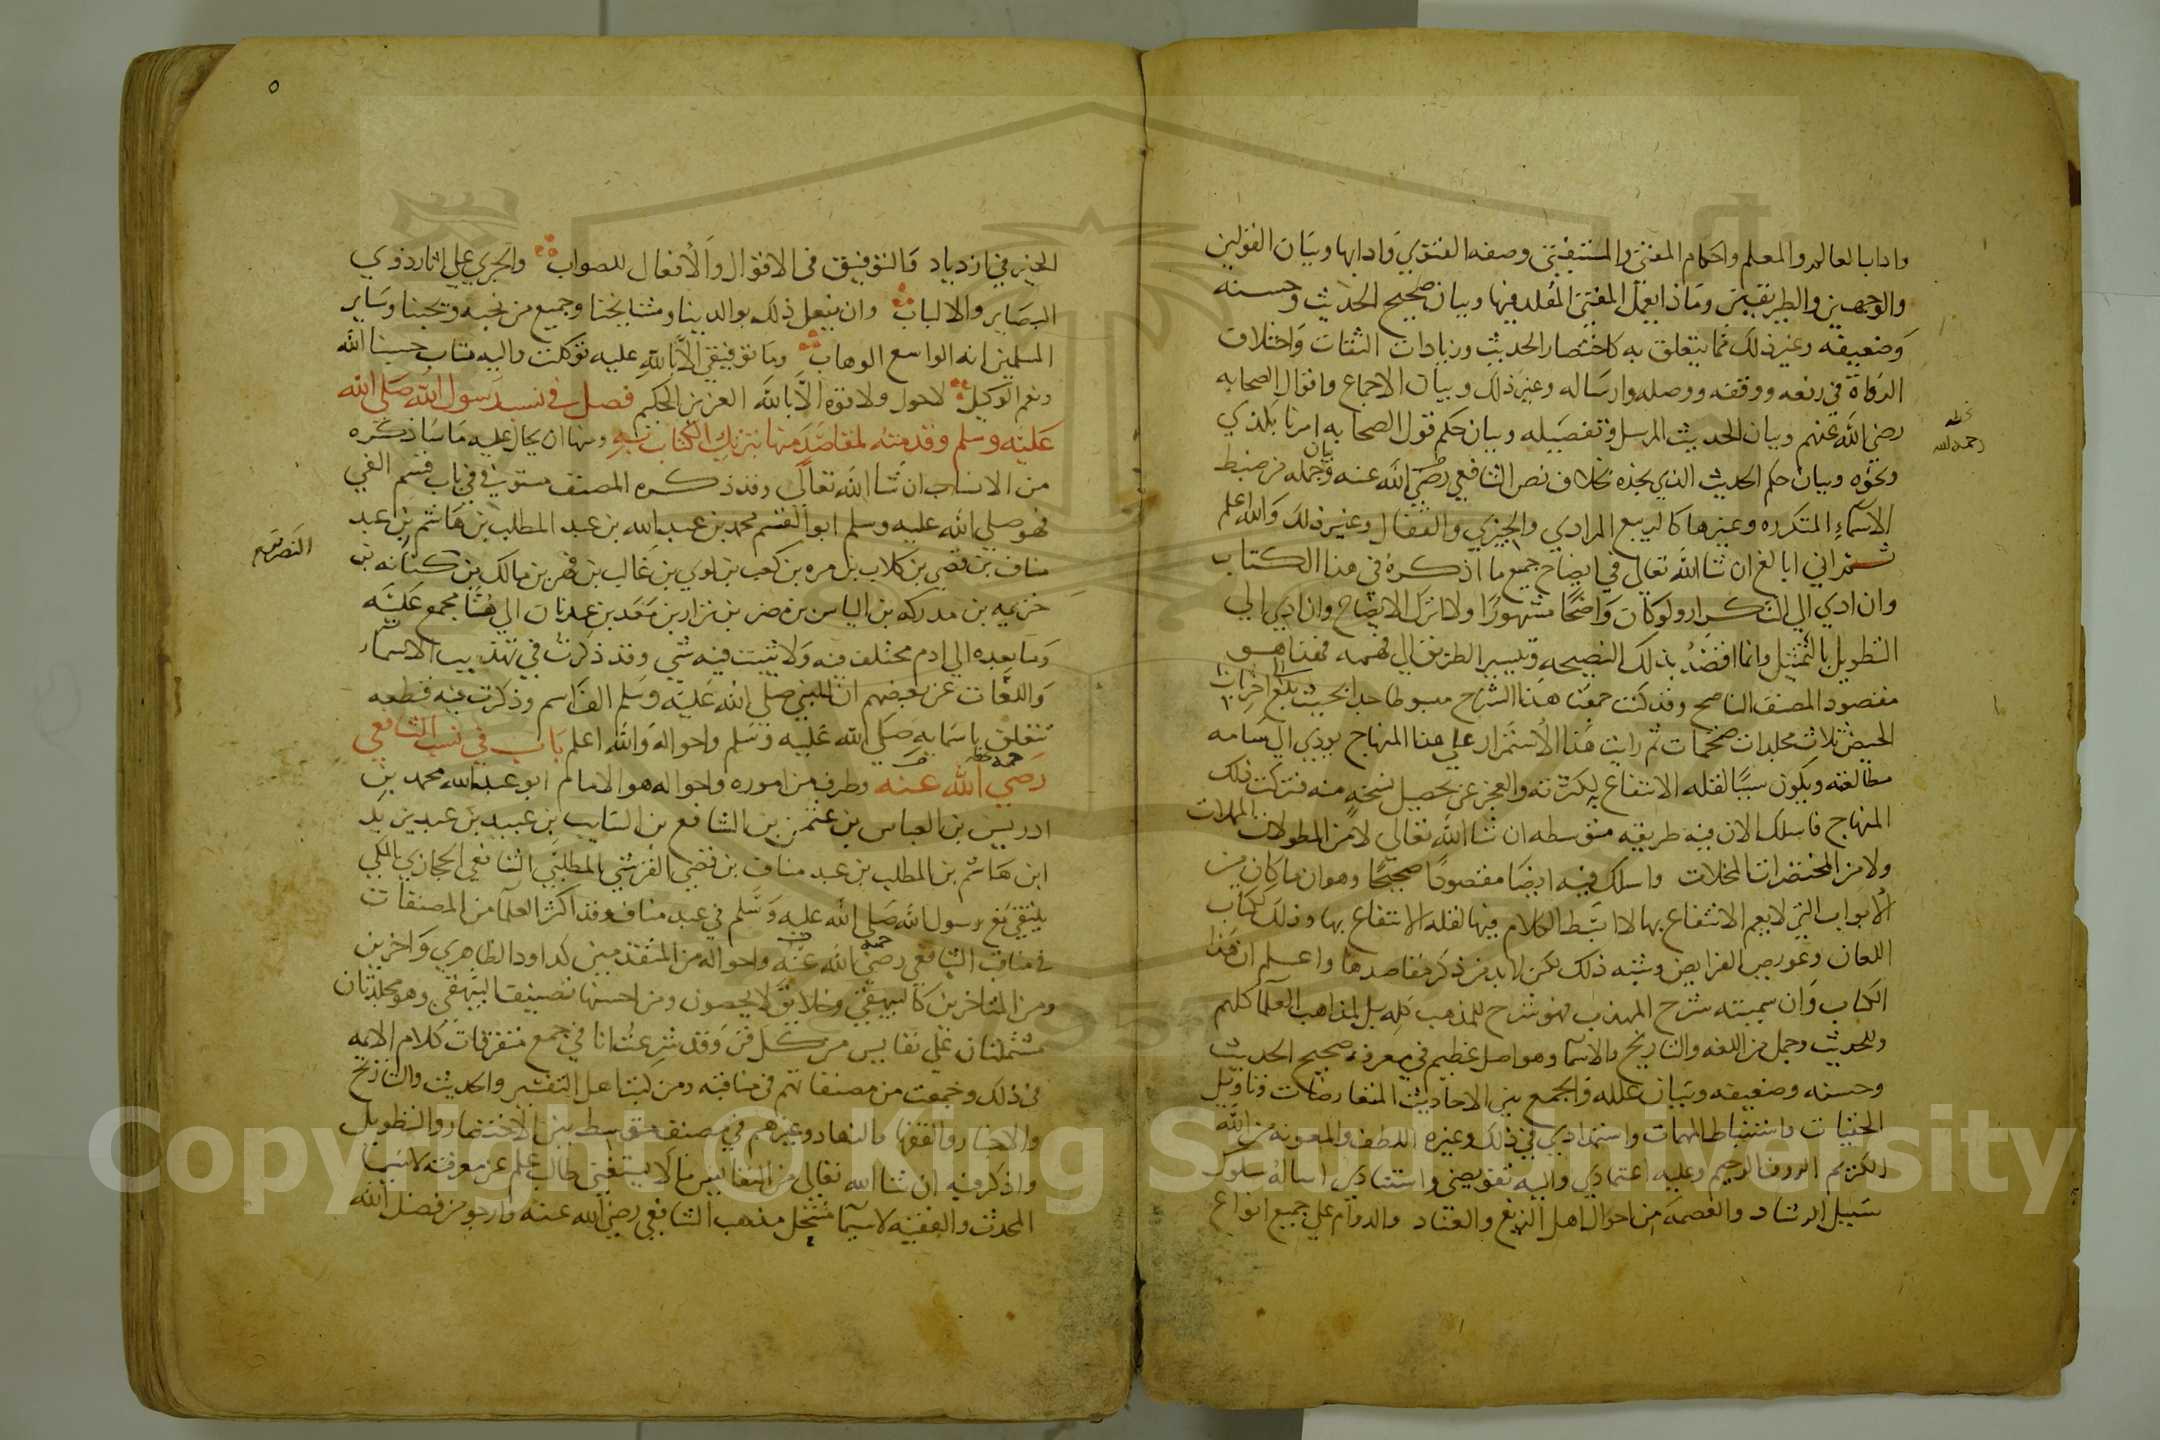 واداب العالم والمعلم واحكام المفتي والمستفتي وصفه الفتوي وادابها وبيان القولين
والوجهين والطريقين وماذا يعمل المفتي المقلد فيها وبيان صحيح الحديث وحسنه
وضعيفه وغير ذلك مما يتعلق به كاختصار الحديث وزيادات الثقات واختلاف
الرواة في رفعه ووقفه ووصله وارساله وغير ذلك وبيان الاجماع واقوال الصحابه
رضي الله عنهم وبيان الحديث المرسل وتفصيله وبيان حكم قول الصحابه امرنا بكذي
ونحوه وبيان حكم الحديث الذي يجده بخلاف نص الشافعي رضي الله عنه وبيان جمله من ضبط
الاسماء المتكرره وغيرها كالربيع المرادي والجيزي والقفال وغير ذلك والله اعلم
ثم اني ابالغ ان شا الله تعالي في ايضاح جميع ما اذكره في هذا الكتاب
وان ادي الي التكرار ولو كان واضحا مشهورا ولا اترك الايضاح وان ادي الي
التطويل بالتمثيل وانما اقصد بذلك النصيحه وتيسير الطريق الي فهمه فهذا هو
مقصود المصنف الناصح وقد كنت جمعت هذا الشرح مبسوطا جدا بحيث بلغ الي اخر باب
الحيض ثلاث مجلدات ضخمات ثم رايت هذا الاستمرار علي هذا المنهاج يودي الي سامه
مطالعه ويكون سببا لقله الانتفاع به لكثرته والعجز عن تحصيل نسخه منه فتركت ذلك
المنهاج فاسلك الان فيه طريقه متوسطه ان شا الله تعالي لا من المطولات المملات
ولا من المختصرات المخلات واسلك فيه ايضا مقصودا صحيحا وهو ان ما كان من
الابواب التي لا يعم الانتفاع بها لا ابسط الكلام فيها لقله الانتفاع بها وذلك ككتاب
اللعان وعويص الفرايض وشبه ذلك لكن لابد من ذكر مقاصدها واعلم ان هذا
الكتاب وان سميته شرح المهذب فهو شرح للمذهب كله بل لمذاهب العلما كلهم
وللحديث وجمل من اللغه والتاريخ والاسما وهو اصل عظيم في معرفه صحيح الحديث
وحسنه وضعيفه وبيان علله والجمع بين الاحاديث المتعارضات وتاويل
الخفيات واستنباط المهمات واستمدادي في ذلك وغيره اللطف والمعونه من الله
الكريم الروف الرحيم وعليه اعتمادي واليه تفويضي واستنادي اساله سلوك
سبيل الرشاد والعصمه من احوال اهل الزيغ والعناد والدوام علي جميع انواع
بخطه
رحمه الله
٥
الخير في ازدياد والتوفيق في الاقوال والافعال للصواب والجري علي اثار ذوي
البصاير والالباب وان يفعل ذلك بوالدينا ومشايخنا وجميع من نحبه ويحبنا وساير
المسلمين انه الواسع الوهاب وما توفيقي الا بالله عليه توكلت واليه متاب حسبنا الله
ونعم الوكيل لاحول ولا قوة الا بالله العزيز الحكيم فصل في نسب رسول الله صلي الله
عليه وسلم وقدمته لمقاصد منها تبريك الكتاب به ومنها ان يحال عليه ما ساذكره
من الانساب ان شا الله تعالي وقد ذكره المصنف مستوفي في باب قسم الفي
فهو صلي الله عليه وسلم ابو القسم محمد بن عبد الله بن عبد المطلب بن هاشم بن عبد
مناف بن قصي بن كلاب بن مره بن كعب بن لوي بن غالب بن فهر بن مالك بن كنانه بن
النضر بن
خزيمه بن مدركه بن الياس بن مضر بن نزار بن معد بن عدنان الي هنا مجمع عليه
وما بعده الي ادم مختلف فيه ولا يثبت فيه شي وقد ذكرت في تهذيب الاسما
واللغات عن بعضهم ان للنبي صلي الله عليه وسلم الف اسم وذكرت فيه قطعه
تتعلق باسمايه صلي الله عليه وسلم واحواله والله اعلم باب في نسب الشافعي
رضي الله عنه وطرف من اموره واحواله هو الامام ابو عبد الله محمد بن
ادريس بن العباس بن عثمن بن الشافع بن السايب بن عبيد بن عبد يزيد
ابن هاشم بن المطلب بن عبد مناف بن قصي القرشي المطلبي الشافعي الحجازي المكي
يلتقي مع رسول الله صلي الله عليه وسلم في عبد مناف وقد اكثر العلما من المصنفات
في مناقب الشافعي رضي الله عنه واحواله من المتقدمين كداود الظاهري واخرين
ومن المتاخرين كالبيهقي وخلايق لا يحصون ومن احسنها تصنيف البيهقي وهو مجلدتان
مشتملتان علي نفايس من كل فن وقد شرعت انا في جمع متفرقات كلام الايمه
في ذلك وجمعت من مصنفاتهم في مناقبه ومن كتب اهل التفسير والحديث والتاريخ
والاخبار والفقها والزهاد وغيرهم في مصنف متوسط بين الاختصار والتطويل
واذكر فيه ان شا الله تعالي من النفايس ما لا يستغني طالب علم عن معرفته لاسيما
المحدث والفقيه لاسيما منتحل مذهب الشافعي رضي الله عنه وارجو من فضل الله
Copyright © King Saud University